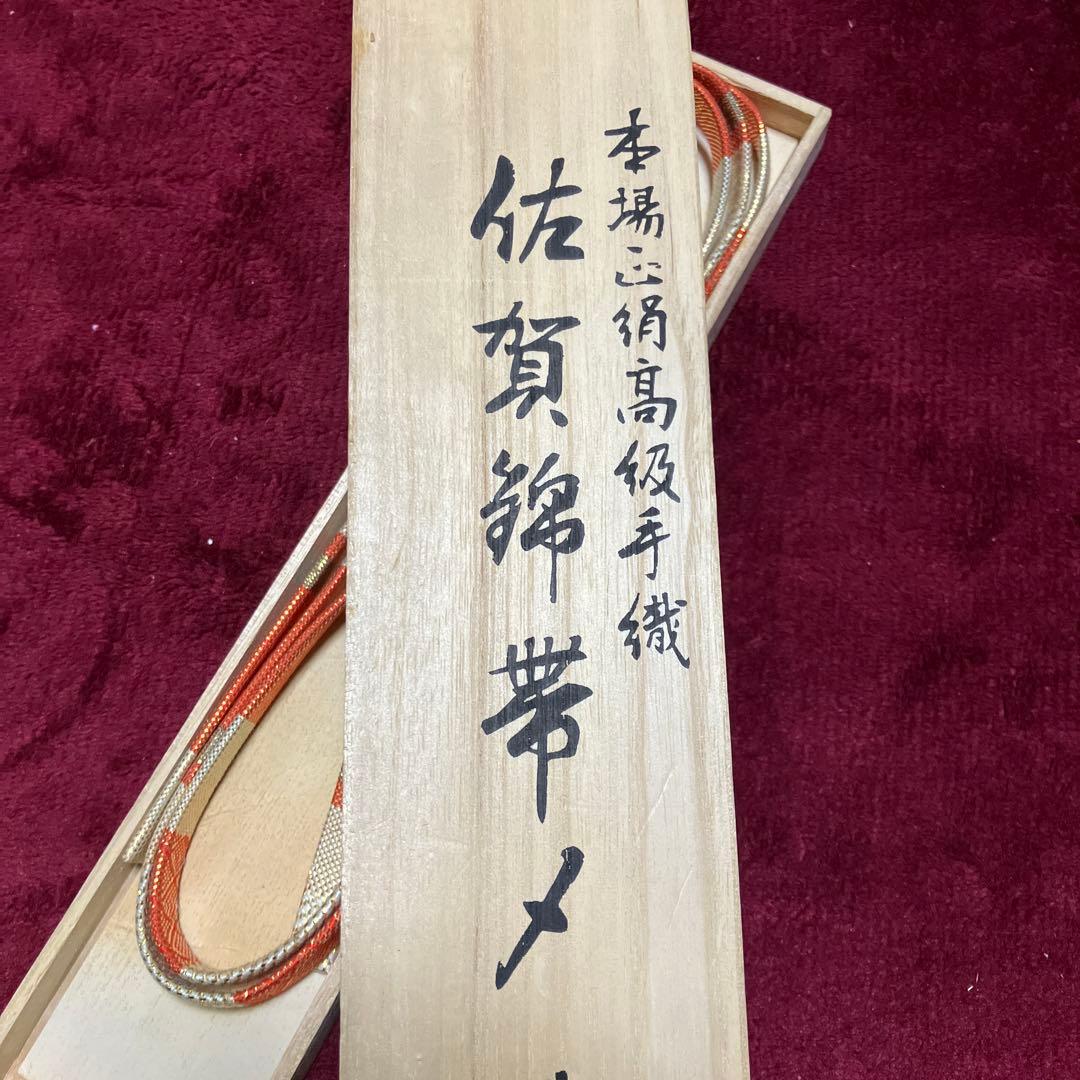 本場正絹高級手織
佐賀錦帯〆